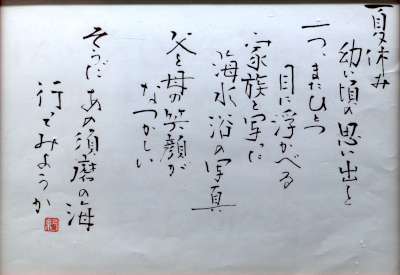 夏休み
幼い頃の思い出を
一つ、またひとつ
目に浮かべる
家族と写った
海水浴の写真
父と母の笑顔が
なつかしい
そうだ あの須磨の海
行ってみようか